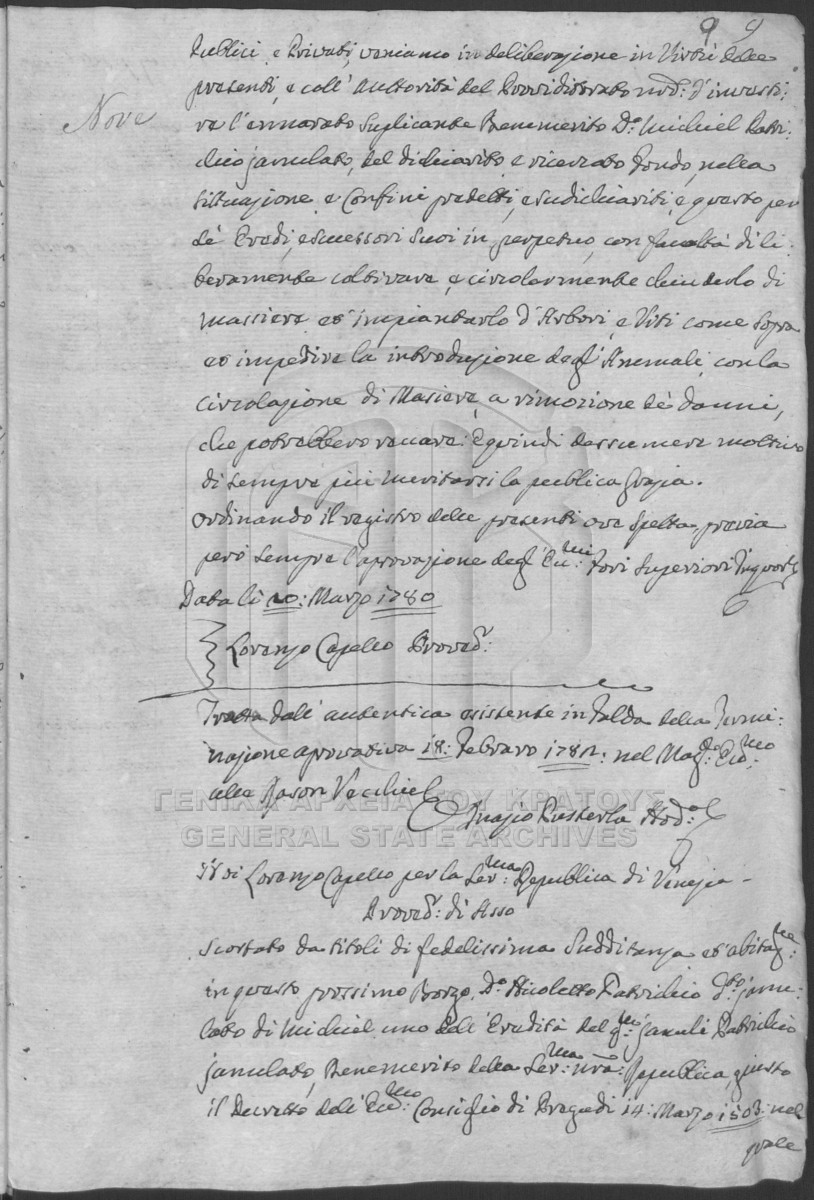 9 9
Publici, e Privati, veniamo in deliberazione in Virtù delle
presenti, e coll' Auttorità del Providitorato nro: d' investi:
Nove
re l'ennarato Suplicante Benemerito Dº: Michiel Patri:
chio janulato, del dichiarito e ricercato Fondo, nella
situazione, e Confini predetti, e sudichiariti, e questo per
sè Eredi, e successori suoi in perpetuo, con facoltà di li:
beramente coltivare, e circolarmente chiuderlo di
Massiere, et impiantarlo d'Arbori, e Viti come sopra
et impedire la introduzione degl' Anemali, con la
circolazione di Masiere, a rimozione dè danni,
che potrebbero recare: E quindi dessumere mottivo
di sempre più meritarsi la publica Grazia.
Ordinando il registro delle presenti ove spetta, previa
però sempre l'aprovazione degl' Ecc:mi Fori Superiori
Data li 20: Marzo 1780
Lorenzo Capello Proved:r
Tratta dall' autentica esistente in Falda della Termi:
nazione aprovativa 18: Febraro 1781: nel Mag:to Ecc:mo
alle Rason Vecchie
Ignazio Pusterla Nod:o
Noi Lorenzo Capello per la Ser:ma Republica di Venezia
Proved:r di Asso
Scortato da titoli di fedelissima Sudditanza, et abitaz:ne
in questo prossimo Borgo, D:º Nicoletto Patrichio D:to janu:
lato di Michiel uno dell' Eredità del q:m Januli Patrichio
janulato, Benemerito della Ser:ma nra: Republica, giusto
il Decretto dell' Ecc:mo Consiglio di Pregadi 14: Marzo 1503: nel
quale
ΓΕΝΙΚΑ ΑΡΧΕΙΑ ΤΟΥ ΚΡΑΤΟΥΣ
GENERAL STATE ARCHIVES